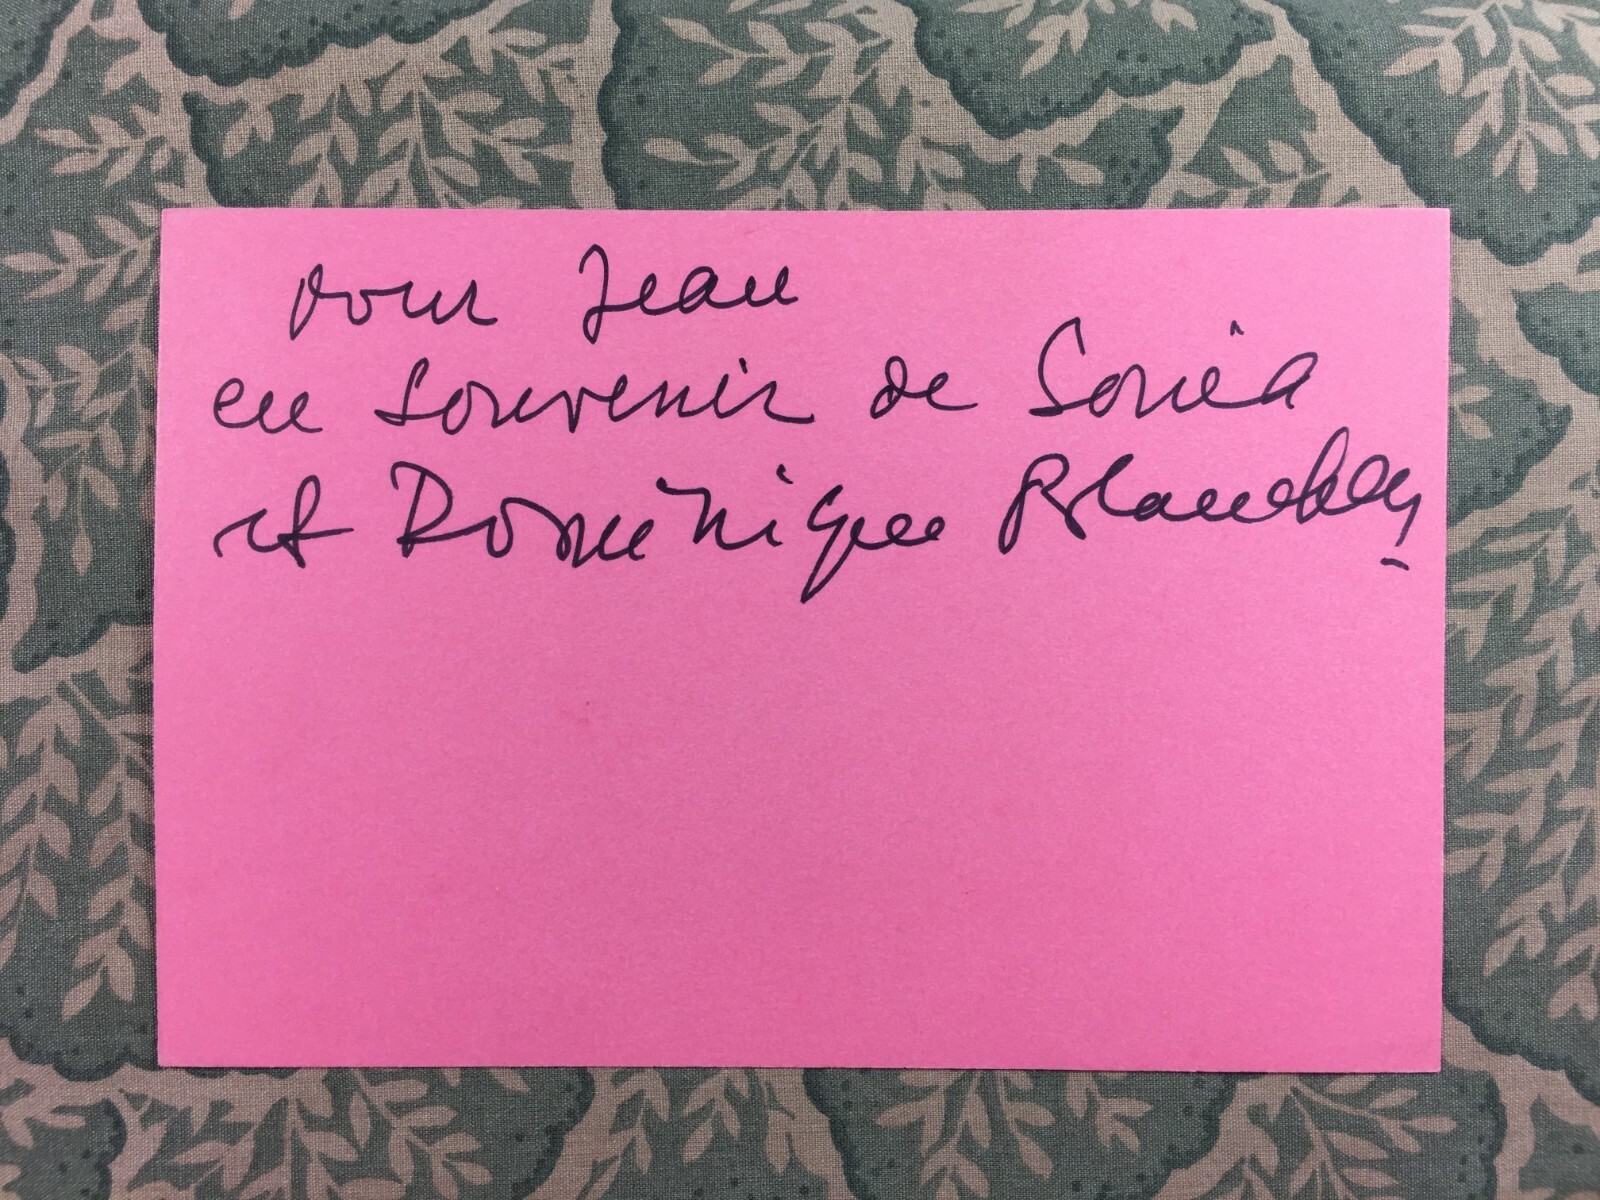 pour Jean
en souvenir de Sonia
et Dominique Blanchar